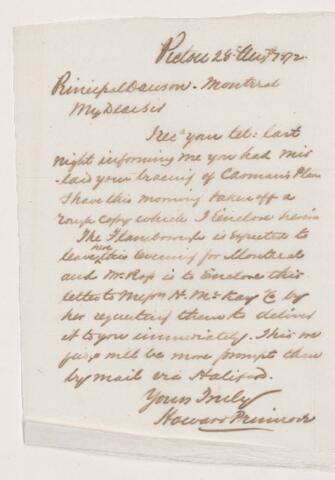 Pictou 28th Augt 1872
Principal Dawson - Montreal
My Dear Sir
Recd your tel: last
night informing me you had mis
laid your tracing of Carman's Plan
I have this morning taken off a
rough copy which I Enclose herein
The Flamborough is Expected to
leave here this Evening for Montreal
and Mr Ross is to Enclose this
letter to Messrs H. McKay &c by
her requesting them to deliver
it to you immediately. This we
will be more prompt than
by mail via Halifax.
Yours Truly
Howard Primrose